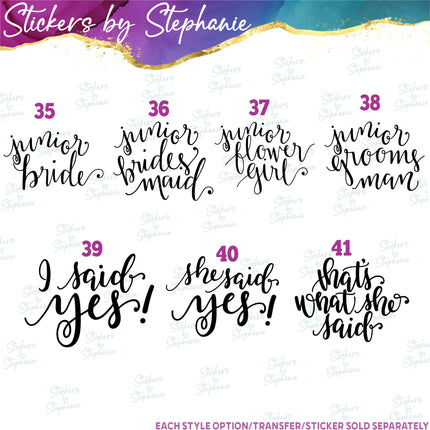 Stickers by Stephanie
35
36
37
38
junior
bride
junior
brides
maid
junior
flower
girl
junior
grooms
man
39
40
41
I said
yes!
she said
yes!
that's
what she
said
EACH STYLE OPTION/TRANSFER/STICKER SOLD SEPARATELY